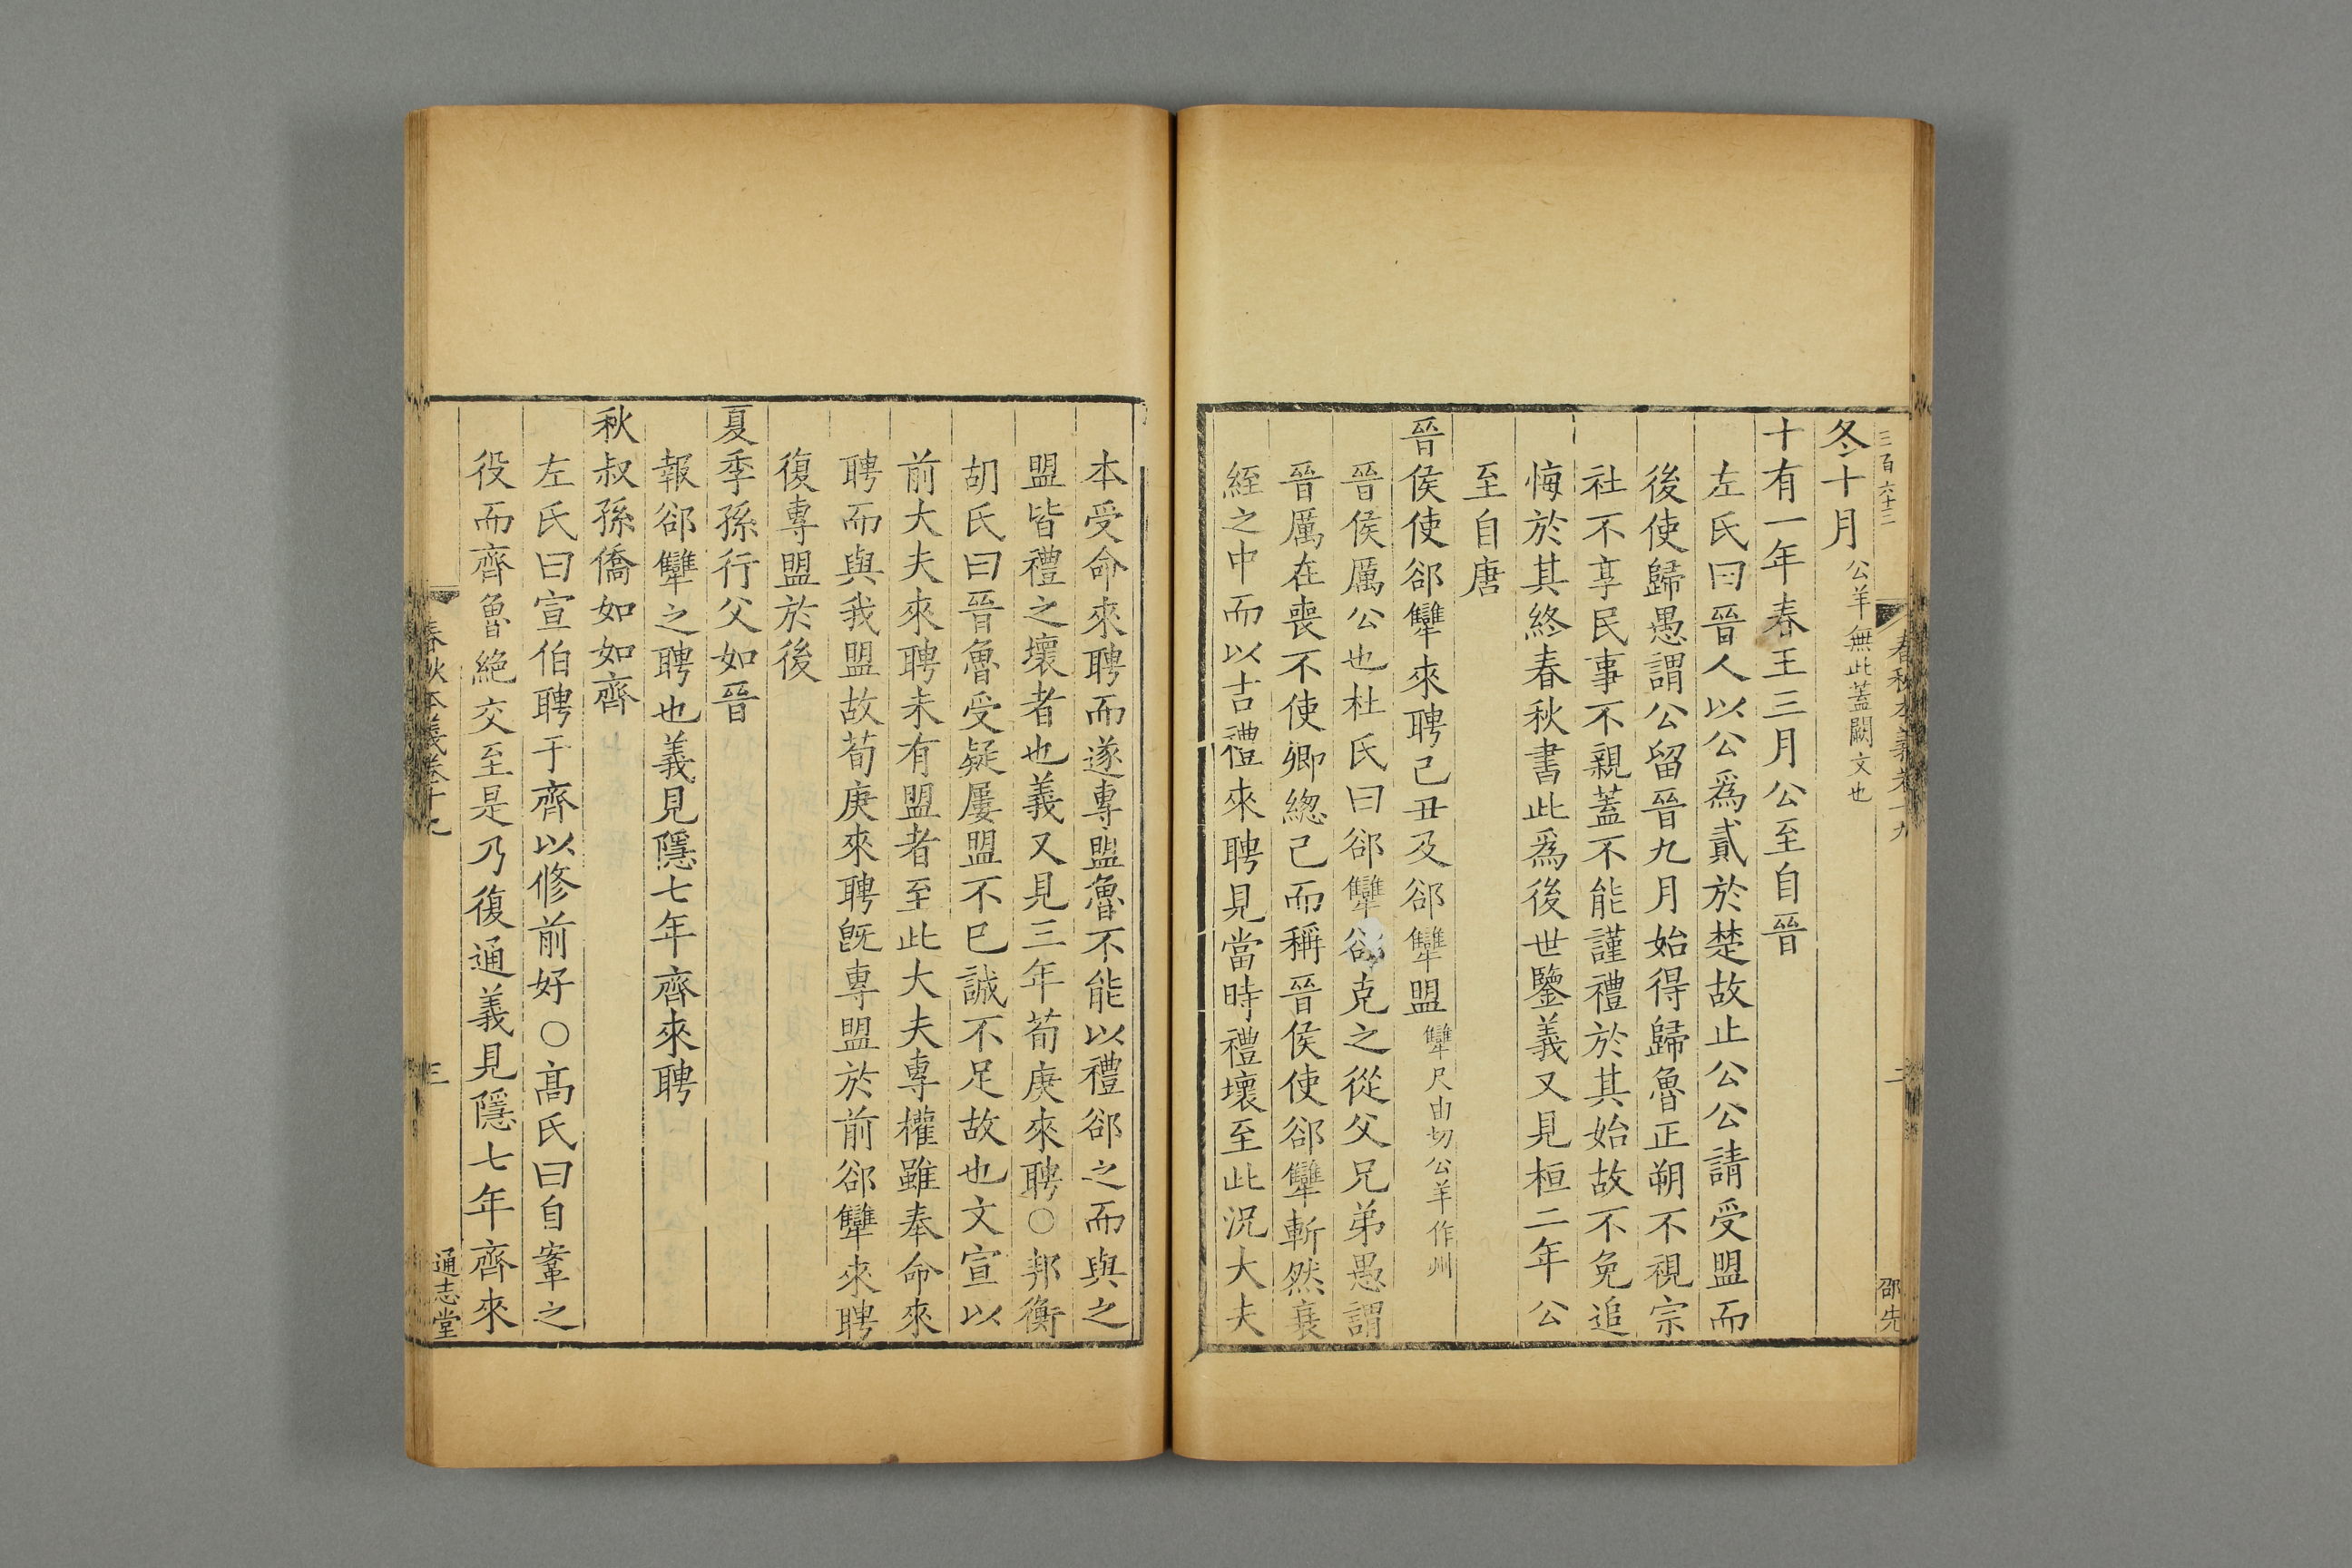 三百六十二
春秋本義卷十九
二
邵先
冬十月公羊無此蓋闕文也
十有一年春王三月公至自晉
左氏曰晉人以公爲貳於楚故止公公請受盟而
後使歸愚謂公留晉九月始得歸魯正朔不視宗
社不享民事不親蓋不能謹禮於其始故不免追
悔於其終春秋書此爲後世鑒義又見桓二年公
至自唐
晉侯使郤犫來聘己丑及郤犫盟犫尺由切公羊作州
晉侯厲公也杜氏曰郤犫郤克之從父兄弟愚謂
晉厲在喪不使卿緫己而稱晉侯使郤犫斬然衰
絰之中而以吉禮來聘見當時禮壞至此況大夫
本受命來聘而遂專盟魯不能以禮郤之而與之
盟皆禮之壞者也義又見三年荀庚來聘○邦衡
胡氏曰晉魯受疑屢盟不巳誠不足故也文宣以
前大夫來聘未有盟者至此大夫專權雖奉命來
聘而與我盟故荀庚來聘旣專盟於前郤犫來聘
復專盟於後
夏季孫行父如晉
報郤犫之聘也義見隱七年齊來聘
秋叔孫僑如如齊
左氏曰宣伯聘于齊以修前好○高氏曰自鞌之
役而齊魯絕交至是乃復通義見隱七年齊來
春秋本義卷十九
三
通志堂